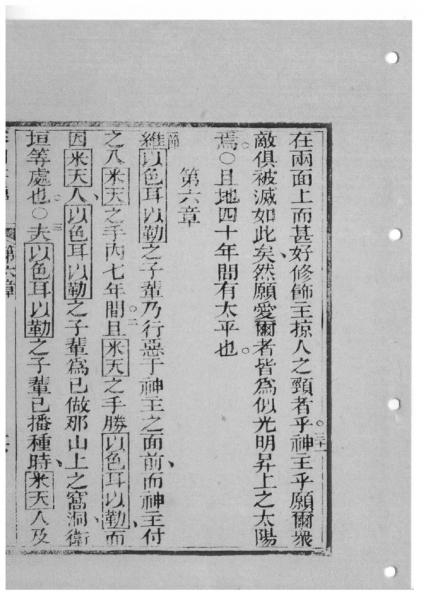 在兩面上而甚好修飾主掠人之頸者乎神主乎願爾衆
敵俱被滅如此矣然願愛爾者皆為似光明昇上之太陽
焉○且地四十年間有太平也
第六章
維以色耳以勒之子輩乃行惡于神主之面前而神主付
之入米天之手內七年間且米天之手勝以色耳以勒而
因米天人以色耳以勒之子輩為已做那山上之窩洞衛
垣等處也○夫以色耳以勒之子輩已播種時米天人及
第六章